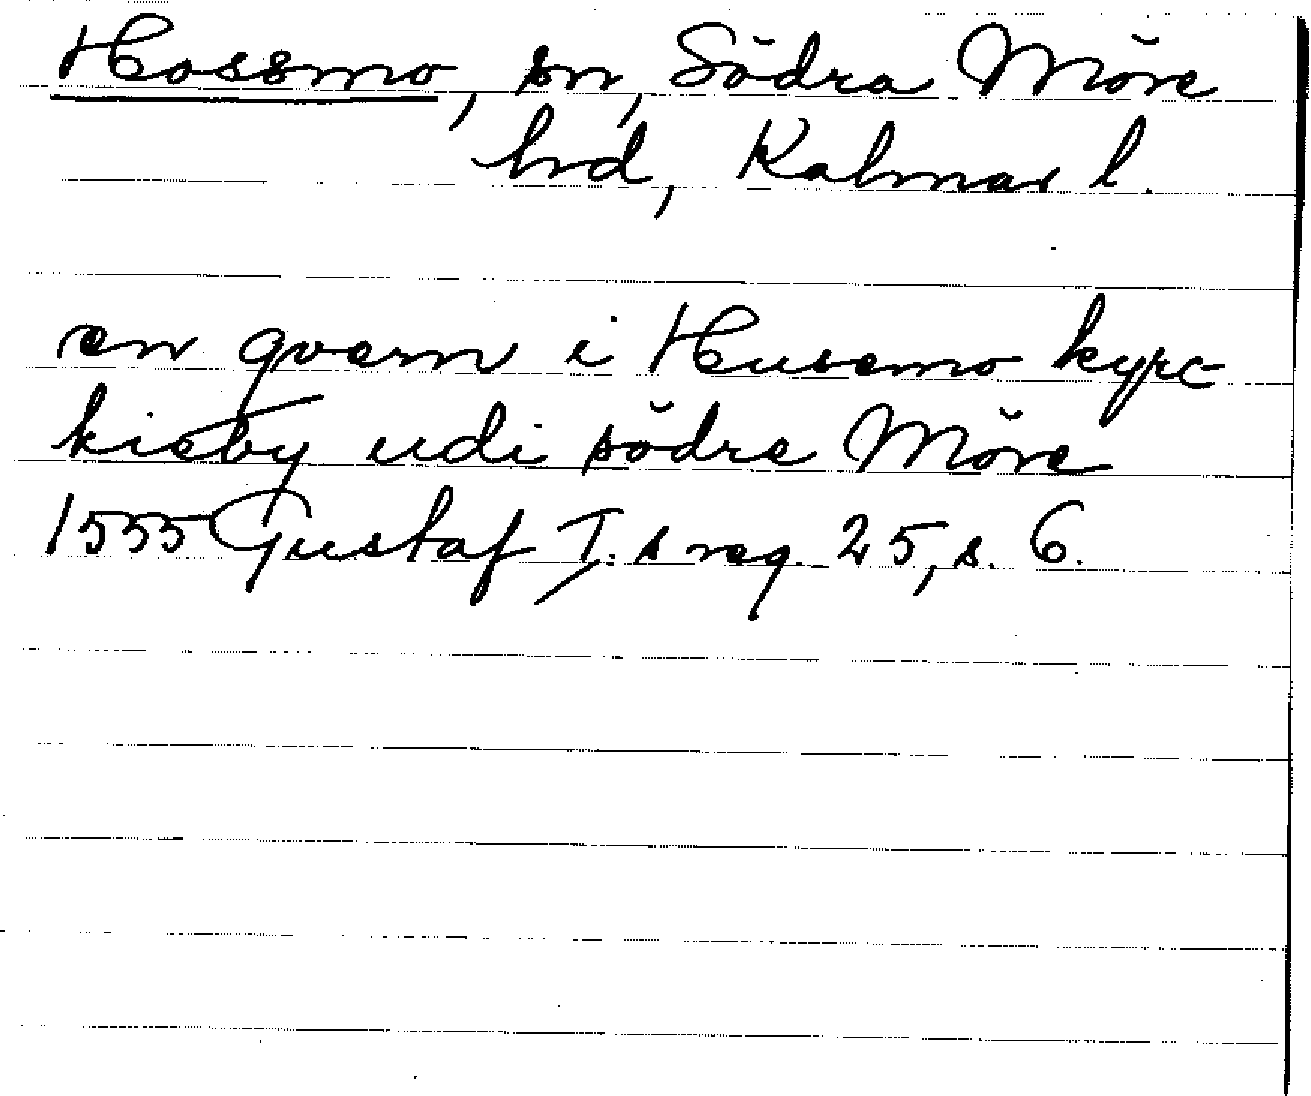 Hossmo, sn, Södra Möre
hrd, Kalmar l.
en qvarn i Husemo kyrc
kieby udi södre Möre
1555 Gustaf I:s reg. 25, s. 6.